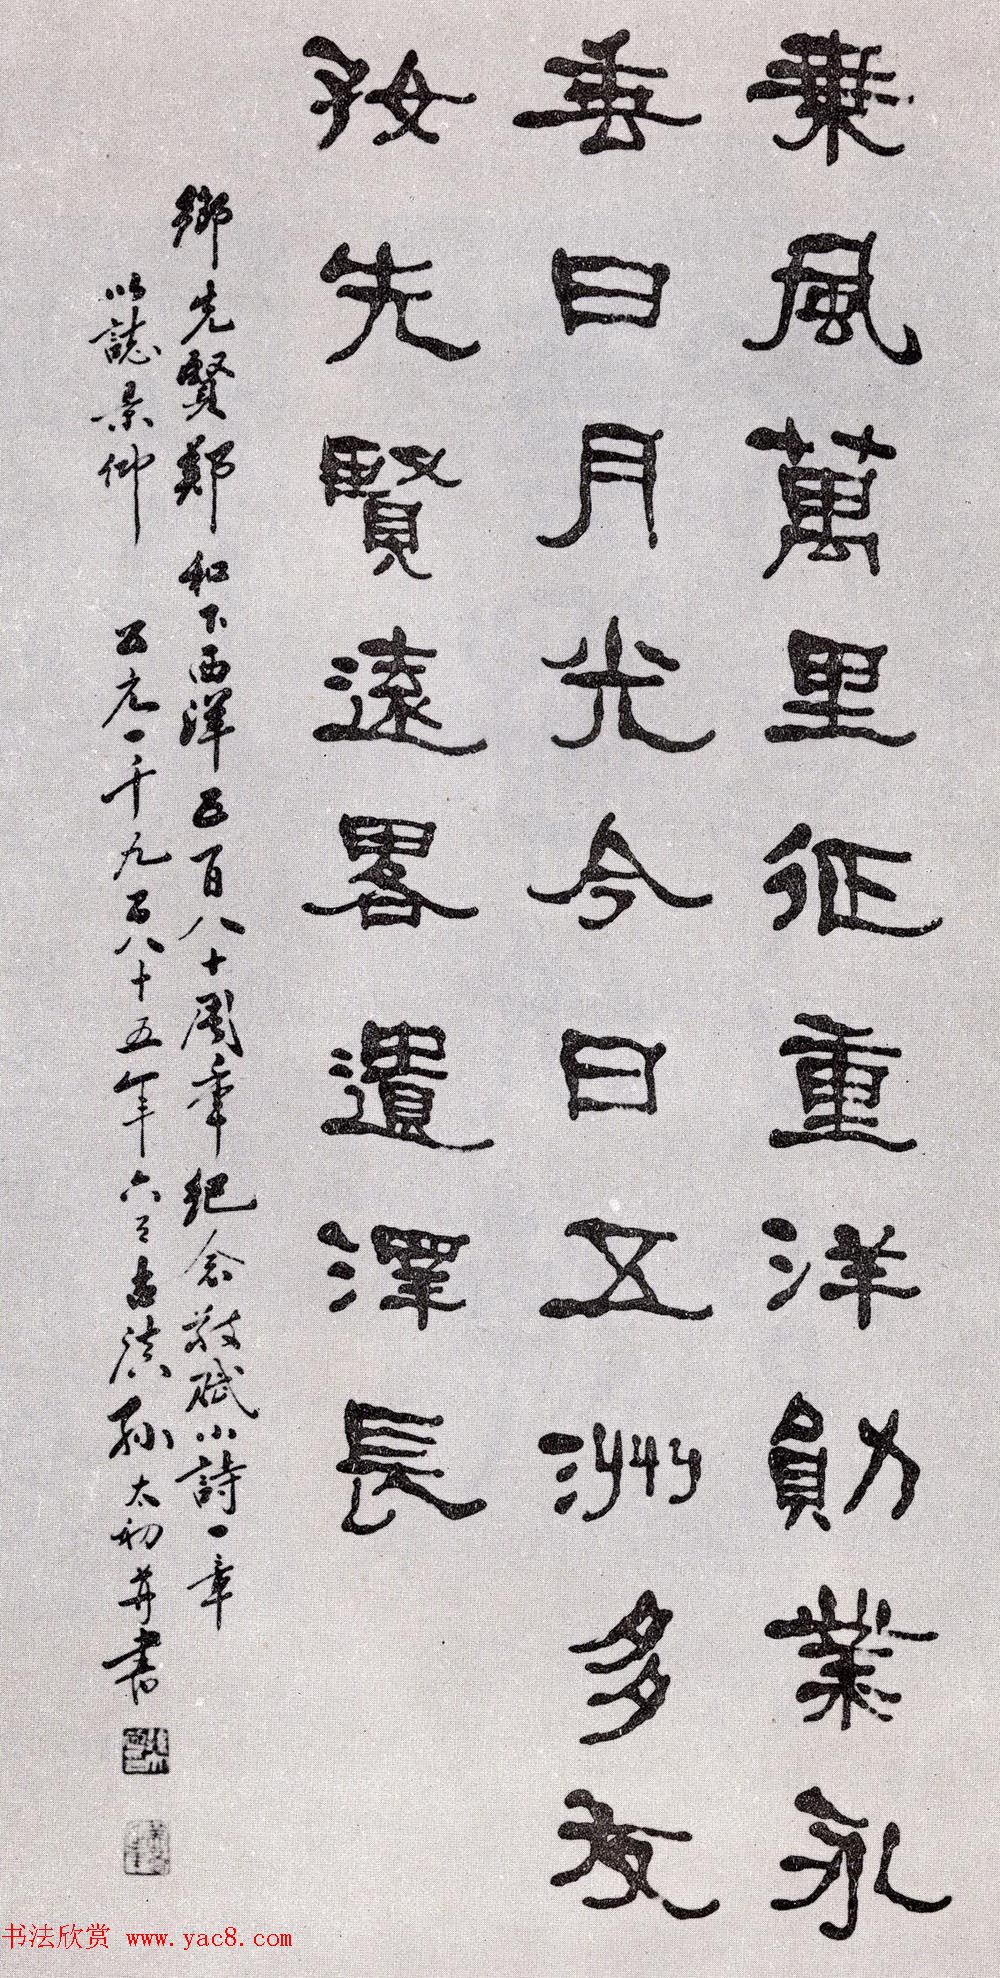 乘風萬里征重洋勛業永
垂日月光今日五洲多友
好先賢遠畧遺澤長
鄉先賢鄭和下西洋五百八十周年紀念敬賦小詩一章
以誌景仰 公元一千九百八十五年六月古滇孫太初并書
书法欣赏 www.yac8.com